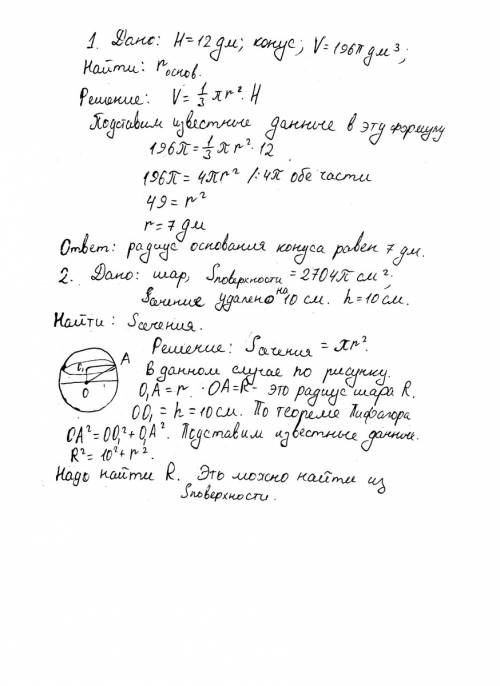 1. Дано: H=12 дм; конус; V=196π дм³;
Найти: r основ.
Решение: V=1/3 πr²·H
Подставим известные данные в эту формулу
196π=1/3 πr²·12
196π=4πr² /:4π обе части
49=r²
r=7 дм
Ответ: радиус основания конуса равен 7 дм.
2. Дано: шар, Sповерхности=2704π см²;
Sечение удалено на 10 см. h=10 см.
Найти: Sсечения.
Решение: Sсечения=πr².
A
O₁
O
В данном случае по рисунку.
O₁A=r. OA=R - это радиус шара R.
OO₁=h=10 см. По теореме Пифагора
OA²=OO₁²+O₁A². Подставим известные данные.
R²=10²+r².
Надо найти R. Это можно найти из
Sповерхности.